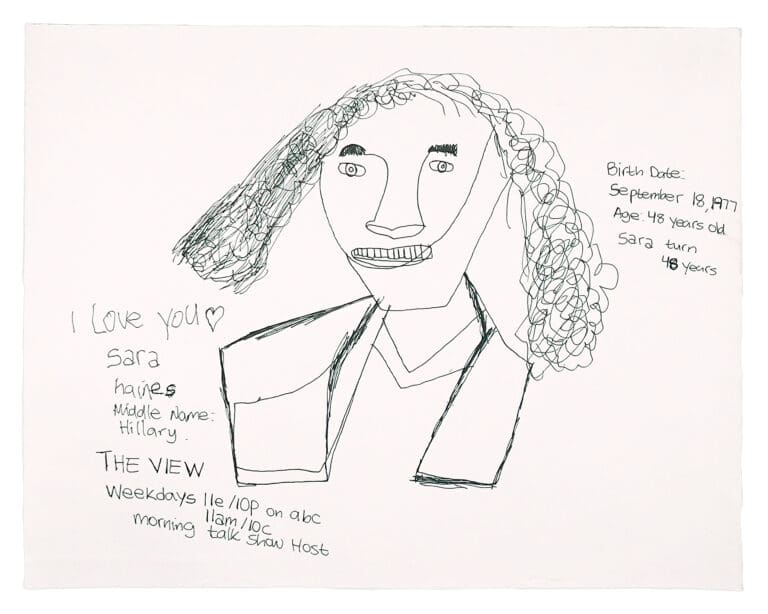 Birth Date:
September 18, 1977
Age: 48 years old
Sara turn
48 years
I Love you
Sara
haines
Middle Name:
Hillary.
THE VIEW
Weekdays 11e/10p on abc
11am/10c
morning talk show Host